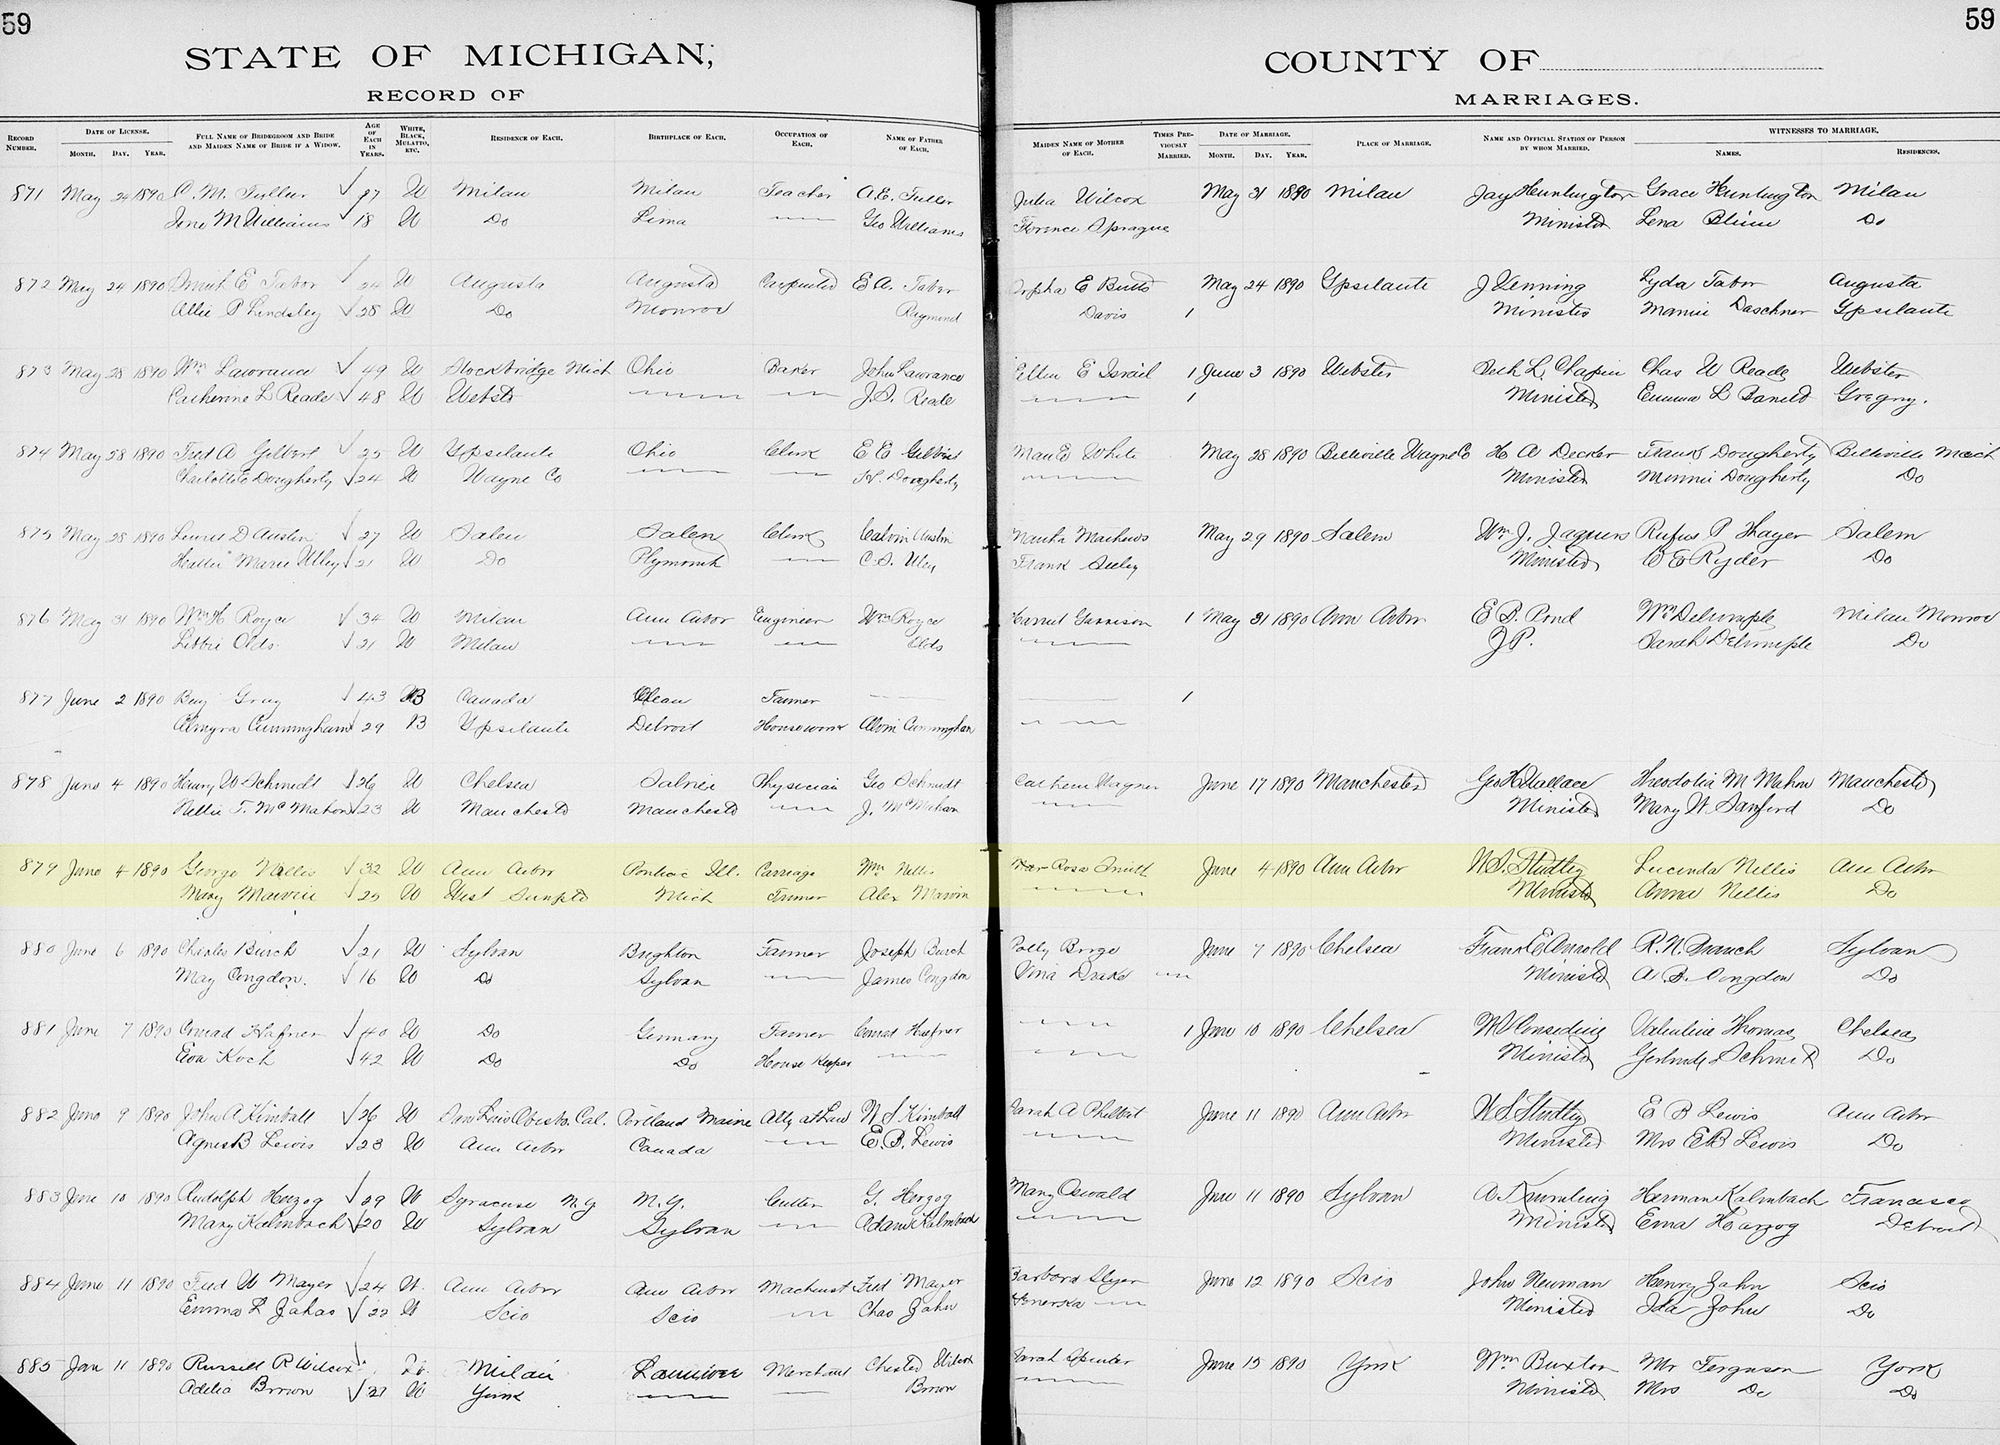 59
59
STATE OF MICHIGAN;
COUNTY OF
RECORD OF
MARRIAGES.
RECORD NUMBER. DATE OF LICENSE. MONTH. DAY. YEAR. FULL NAME OF BRIDEGROOM AND BRIDE AND MAIDEN NAME OF BRIDE IF A WIDOW. AGE OF EACH IN YEARS. WHITE, BLACK, MULATTO, ETC. RESIDENCE OF EACH. BIRTHPLACE OF EACH. OCCUPATION OF EACH. NAME OF FATHER OF EACH. MAIDEN NAME OF MOTHER OF EACH. TIMES PREVIOUSLY MARRIED. DATE OF MARRIAGE. MONTH. DAY. YEAR. PLACE OF MARRIAGE. NAME AND OFFICIAL STATION OF PERSON BY WHOM MARRIED. WITNESSES TO MARRIAGE. NAMES. RESIDENCES.
871 May 1890 C. M. Fuller W Milan Milan Teacher A. E. Fuller Julia Wilcox May 31 1890 Milan Jay Huntington Grace Huntington Milan
Williams 18 W Do Lima Geo Williams Florence Sprague Minister Lena Do
872 May 24 1890 E Tabor 24 W Augusta Augusta E A. Tabor Orpha E Butts May 24 1890 Ypsilante J Venning Lyda Tabor Augusta
Allie P Lindsley 28 W Do Monroe Raymond Davis 1 Minister Mamie Daschner Ypsilante
873 May 28 1890 Wm Lawrance 49 W Stockbridge Mich Ohio Baker John Lawrance Ellen E Israil 1 June 3 1890 Webster Seth L. Chapin Chas W Reade Webster
Catherine L Reade 48 W Webster J. S. Reade 1 Minister Emma L Gregry.
874 May 28 1890 Fred A Gilbert 25 W Ypsilante Ohio Clerk E E Gilbert White May 28 1890 Belleville Wayne Co H A Decker Frank Dougherty Belleville Mich
Charlotte Dougherty 24 W Wayne Co Dougherty Minister Minnie Dougherty Do
875 May 28 1890 D Austin 27 W Salem Salem Clerk Calvin Austin Martha Mathews May 29 1890 Salem Wm J. Jaquess Rufus P Thayer Salem
Hattie Marie Utley 21 W Do Plymouth C. S. Utley Seeley Minister E Ryder Do
876 May 31 1890 Wm H Royce 34 W Milan Ann Arbor Engineer Wm Royce Garrison 1 May 31 1890 Ann Arbor E B. Pond Wm Delimple Milan Monroe
Libbie Olds 21 W Milan Olds J P. Sarah Delimple Do
877 June 2 1890 Gray 43 B Canada Farmer 1
Almyra Cunningham 29 B Ypsilante Detroit Housework Alvin Cunningham
878 June 4 1890 Henry W Schmidt 26 W Chelsea Physician Geo Schmidt Wagner June 17 1890 Manchester Geo H Wallace Theodotia M Mahon Manchester
Nellie T. McMahon 23 W Manchester Manchester J. McMahon Minister Mary W. Sanford Do
879 June 4 1890 George Nellis 32 W Ann Arbor Pontiac Ill. Carriage Wm Nellis Rosa Smith June 4 1890 Ann Arbor W. S. Studley Lucinda Nellis Ann Arbor
Mary Marvin 25 W West Mich Farmer Alex Marvin Minister Anna Nellis Do
880 June 6 1890 Charles Burch 21 W Sylvan Brighton Farmer Joseph Burch Polly Brige June 7 1890 Chelsea Frank E Arnold R. N. Branch Sylvan
May Congdon. 16 W Do Sylvan James Congdon Vina Drake Minister A. B. Congdon Do
881 June 7 1890 Conrad Hafner 40 W Do Germany Farmer Conrad Hafner 1 June 10 1890 Chelsea W P Considine Valentine Thomas Chelsea
Eva Koch 42 W Do Do House Keeper Minister Gertrude Schmidt Do
882 June 9 1890 John A Kimball 26 W San Luis Obisto. Cal. Portland Maine Atty at Law W S Kimball Sarah A Philbert June 11 1890 Ann Arbor W. S. Studley E B Lewis Ann Arbor
Agnes B Lewis 23 W Ann Arbor Canada E. B. Lewis Minister Mrs E B Lewis Do
883 June 10 1890 Rudolph Herzog 29 W Syracuse N. Y N. Y. Cutter G. Herzog Mary Oswald June 11 1890 Sylvan Herman Kalmbach Francisco
Mary Kalmbach 20 W Sylvan Sylvan Adam Kalmbach Minister Ema Herzog Detroit
884 June 11 1890 Fred W Mayer 24 W. Ann Arbor Ann Arbor Machinist Fred Mayer Barbara June 12 1890 Scio John Neuman Henry Zahn Scio
Emma L Zahn 22 W Scio Scio Chas Zahn Minister Ida Zohn Do
885 Jun 11 1890 Russell R Wilcox W. Milan Merchant Chester Wilcox Sarah June 15 1890 York Wm Buxton Mr Ferguson York
Adelia Brown 27 W York Brown Minister Mrs Do Do